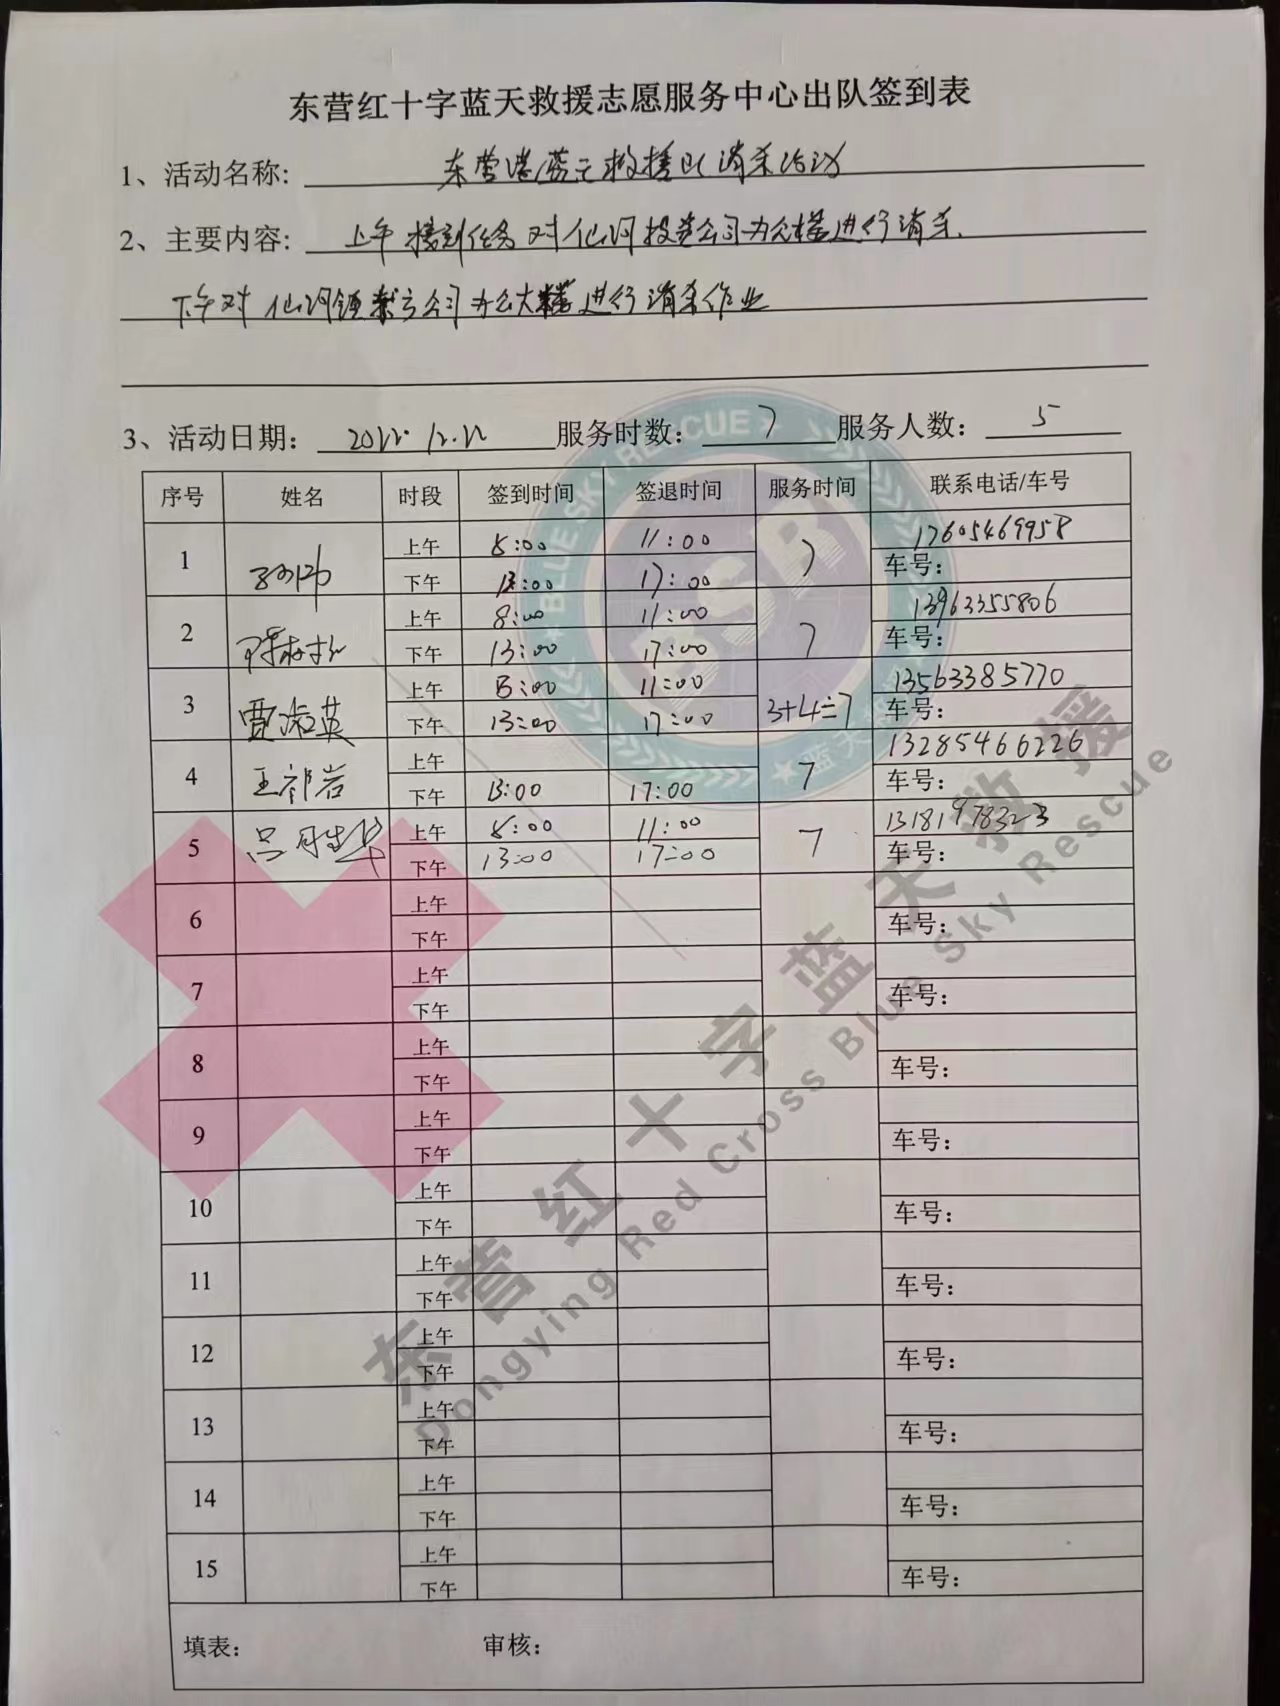 东营红十字蓝天救援志愿服务中心出队签到表
1、活动名称: 东营港蓝天救援队消杀活动
2、主要内容: 上午接到任务对仙河投资公司办公楼进行消杀.
下午对仙河镇 公司办公大楼进行消杀作业
3、活动日期: 2022.12.12 服务时数: 7 服务人数: 5
序号 姓名 时段 签到时间 签退时间 服务时间 联系电话/车号
1 上午 8:00 11:00 7 17605469958
下午 13:00 17:00 车号:
2 上午 8:00 11:00 7 13963355806
下午 13:00 17:00 车号:
3 贾淑英 上午 8:00 11:00 3+4=7 13563385770
下午 13:00 17:00 车号:
4 王祁岩 上午 7 13285466226
下午 13:00 17:00 车号:
5 吕 华 上午 8:00 11:00 7 13181978323
下午 13:00 17:00 车号:
6 上午
下午 车号:
7 上午
下午 车号:
8 上午
下午 车号:
9 上午
下午 车号:
10 上午
下午 车号:
11 上午
下午 车号:
12 上午
下午 车号:
13 上午
下午 车号:
14 上午
下午 车号:
15 上午
下午 车号:
填表: 审核:
BLUE SKY RESCUE
BSR
蓝天救援
东营红十字蓝天救援
Dongying Red Cross Blue Sky Rescue